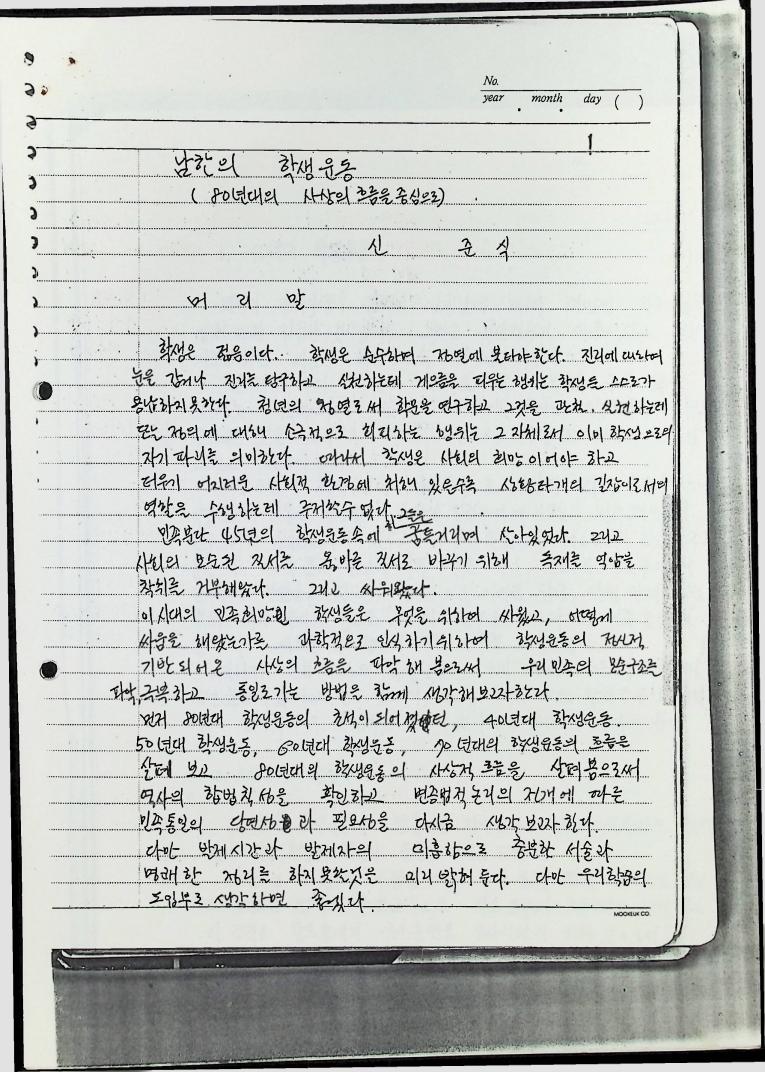 No.
year . month . day ( )
1
남한의 학생운동
( 80년대의 사상의 흐름을 중심으로)
신 준 식
머 리 말
학생은 젊음이다.. 학생은 순수하며 정열에 불타야한다. 진리에 대하여
눈을 감거나 진리를 탐구하고 실천하는데 게으름을 피우는 행위는 학생들 스스로가
용납하지 못한다. 청년의 정열로써 학문을 연구하고 그것을 관철. 실현하는데
또는 정의에 대해 소극적으로 회피하는 행위는 그 자체로서 이미 학생으로의
자기 파괴를 의미한다. 따라서 학생은 사회의 희망이어야 하고
더우기 어지러운 사회적 환경에 처해 있을수록 상황타개의 길잡이로서의
역할을 수행하는데 주저할수 없다.
민족분단 45년의 학생운동속에 그들은 꿈틀거리며 살아있었다. 그리고
사회의 모순된 질서를 올바른 질서로 바꾸기 위해 독재를 억압을
착취를 거부해왔다. 그리고 싸워왔다.
이시대의 민족희망인 학생들은 무엇을 위하여 싸웠고, 어떻게
싸움을 해왔는가를 과학적으로 인식하기위하여 학생운동의 정신적
기반되어온 사상의 흐름을 파악해 봄으로써 우리민족의 모순구조를
파악,극복하고 통일로가는 방법을 함께 생각해보고자한다.
먼저 80년대 학생운동의 초석이 되어졌던, 40년대 학생운동.
50년대 학생운동, 60년대 학생운동, 70년대의 학생운동의 흐름은
살펴 보고 80년대의 학생운동의 사상적 흐름을 살펴봄으로써
역사의 합법칙성을 확인하고 변증법적논리의 전개에 따른
민족통일의 당연성과 필요성을 다시금 생각보고자 한다.
다만 발제시간과 발제자의 미흡함으로 충분한 서술과
명쾌한 정리를 하지못한것은 미리 밝혀 둔다. 다만 우리학습의
도입부로 생각하면 좋겠다.
MOOKEUK CO.